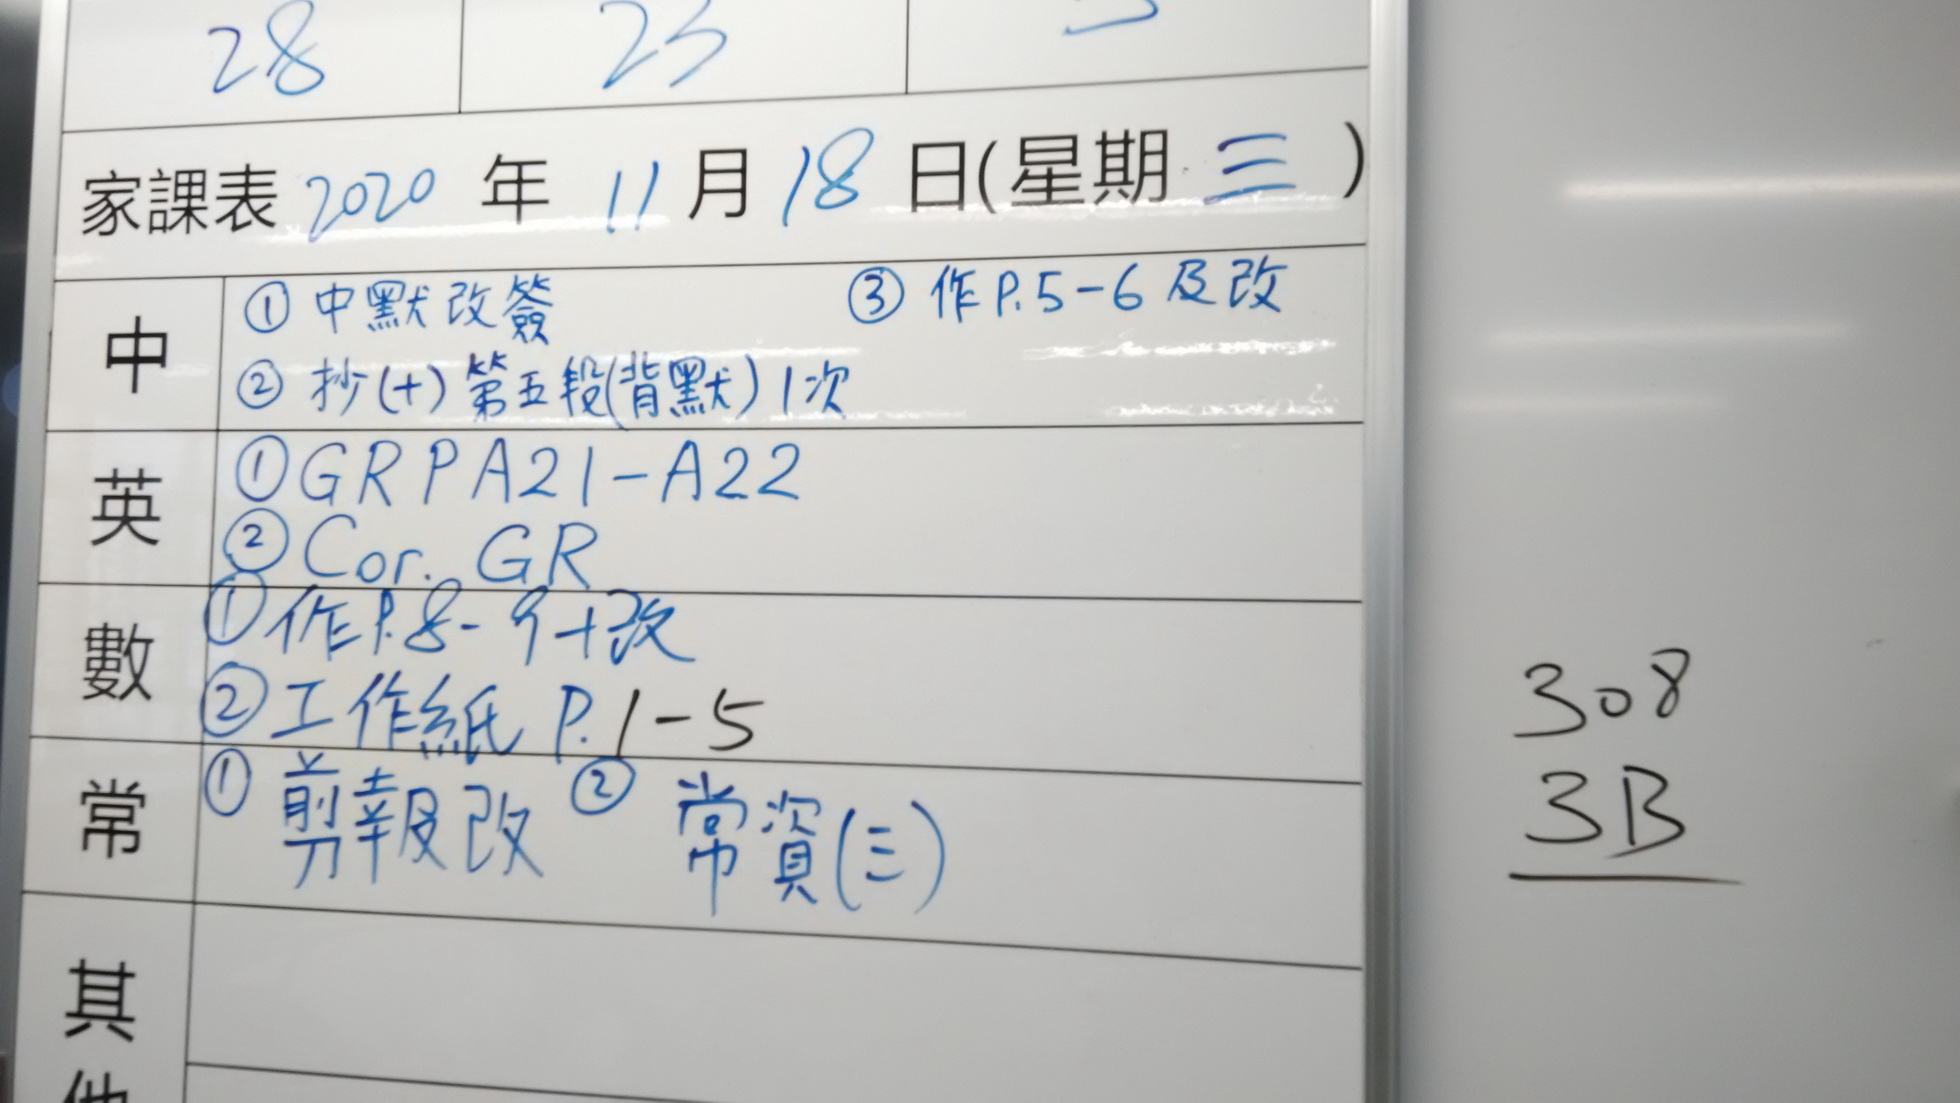 28 23
家課表 2020 年 11 月 18 日(星期 三 )
中 ① 中默改簽 ③ 作P.5-6及改
② 抄(十)第五段(背默)1次
英 ① GR P A21-A22
② Cor. GR
數 ① 作P.8-9+改
② 工作紙 P.1-5
常 ① 剪報改 ② 常資(三)
其他
308
3B